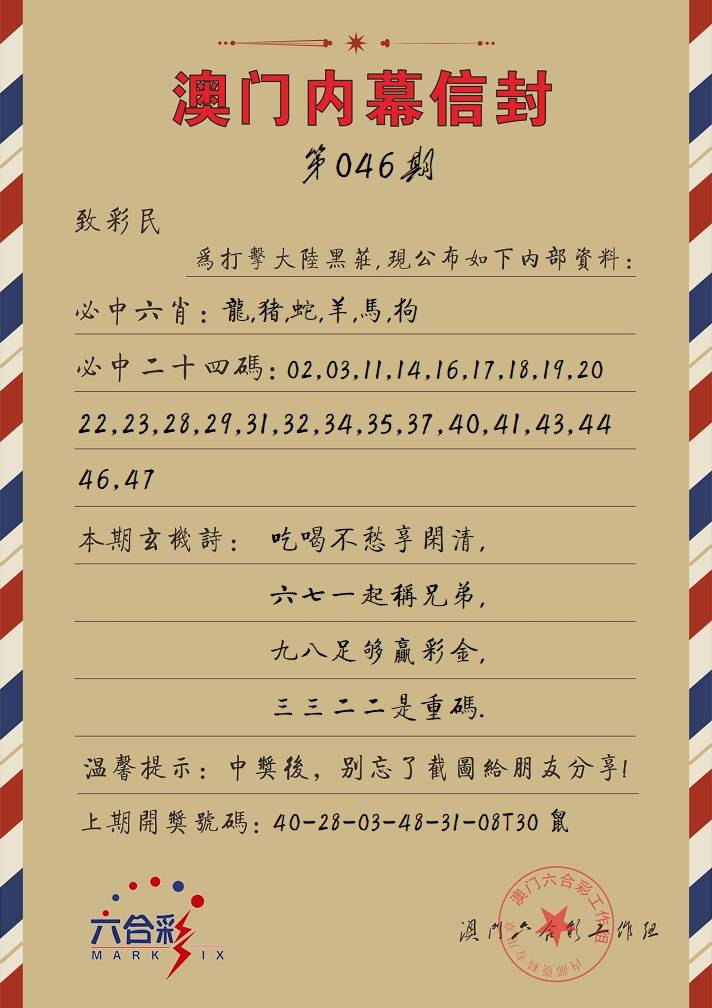 澳门内幕信封
第046期
致彩民
為打擊大陸黑莊,現公布如下内部資料:
必中六肖: 龍,猪,蛇,羊,馬,拘
必中二十四碼: 02,03,11,14,16,17,18,19,20
22,23,28,29,31,32,34,35,37,40,41,43,44
46,47
本期玄機詩: 吃喝不愁享閑清,
六七一起稱兄弟,
九八足够贏彩金,
三三二二是重碼.
温馨提示: 中獎後, 别忘了截圖給朋友分享!
上期開獎號碼: 40-28-03-48-31-08T30 鼠
六合彩
MARK SIX
澳门六合彩工作组
内部资料专用章
澳门六合彩工作组